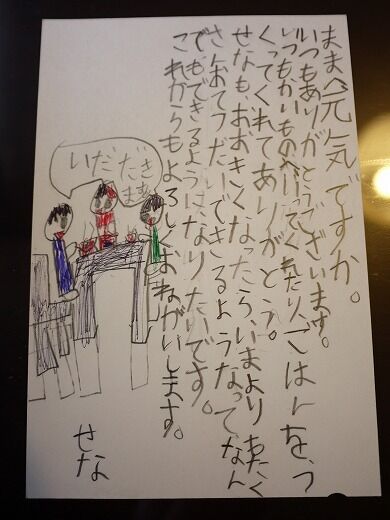 ままへ元気ですか。
いつもありがとうございます。
いつもかいものへいってくれたり、ごはんを、つ
くってくれてありがとう。
せなも、おおきくなったら、いまよりあたく
さんおてつだいできるようなってなん
でもできるようになりたいです。
これからもよろしくおねがいします。
せな
いだだき
ます